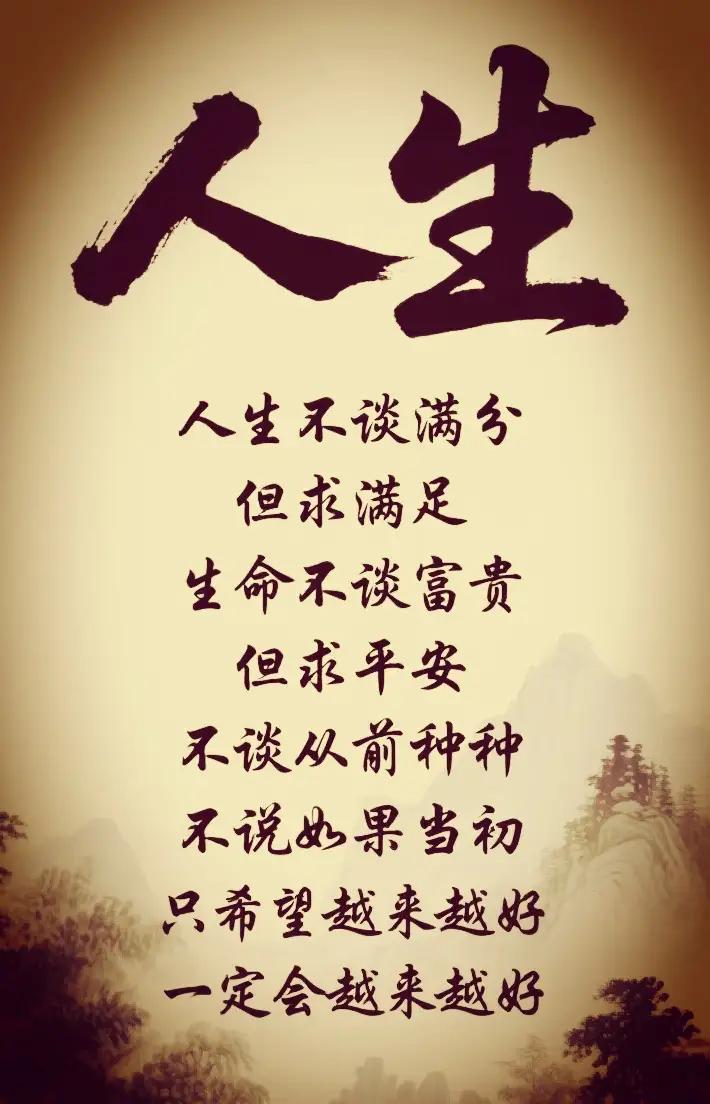 人生
人生不谈满分
但求满足
生命不谈富贵
但求平安
不谈从前种种
不说如果当初
只希望越来越好
一定会越来越好